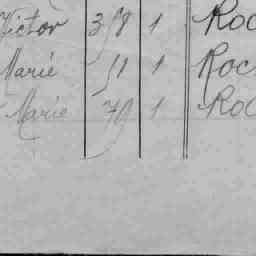 Victor 3/8 1 Roc
Marie 1 1 Roc
Marie 70 1 Roc